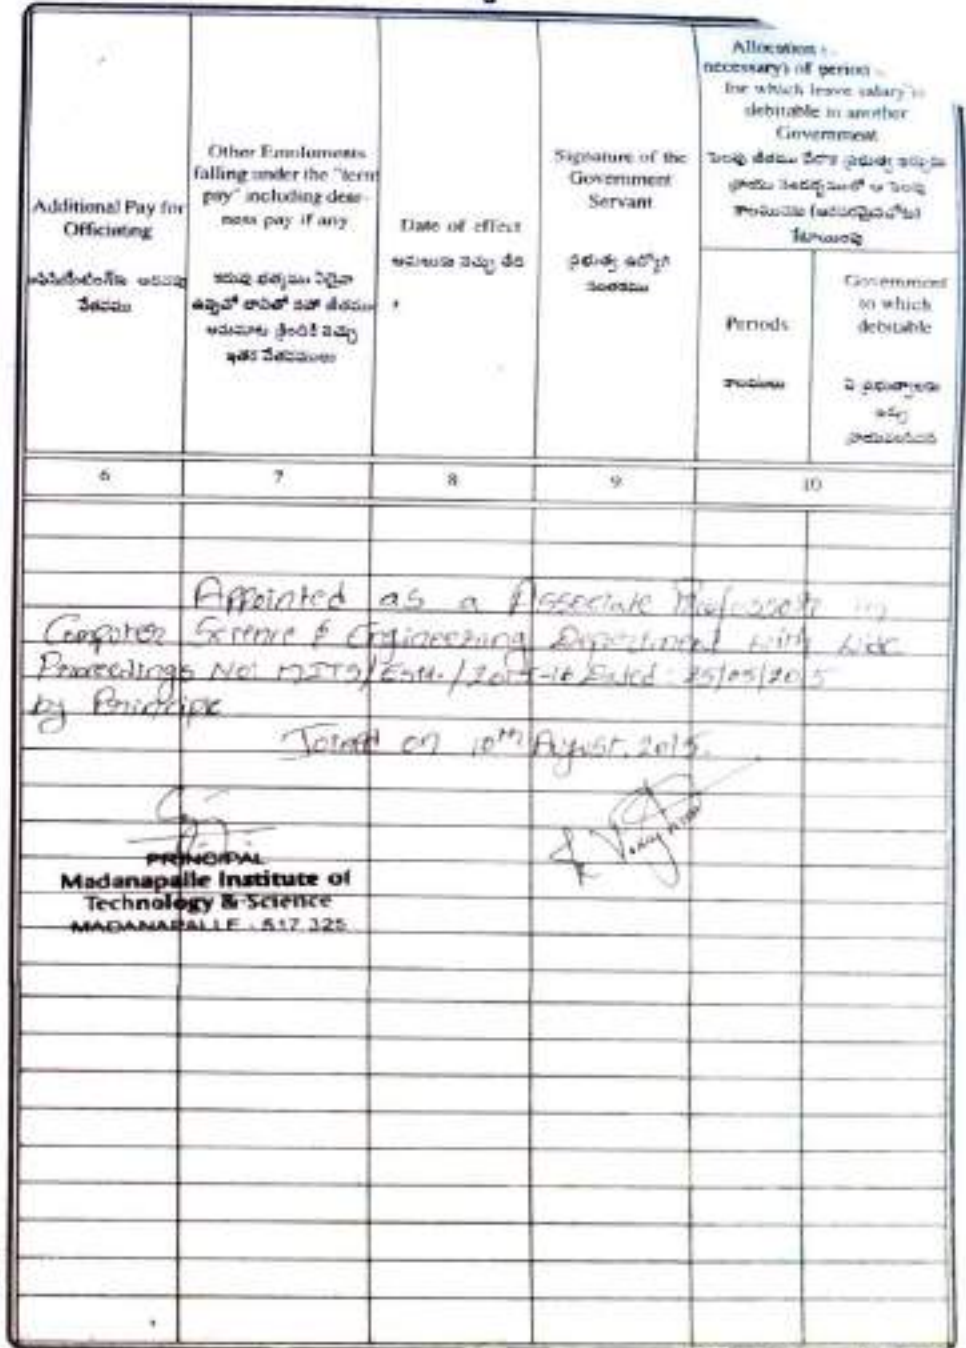 Additional Pay for
Officiating
వేతనము
Other Emoluments
falling under the "term
pay" including dear-
ness pay if any
కరువు భత్యము ఏదైనా
ఉన్నచో దానితో సహా జీతము
అనుమాట క్రిందికి వచ్చు
ఇతర వేతనములు
Date of effect
అమలుకు వచ్చు తేది
Signature of the
Government
Servant
ప్రభుత్వ ఉద్యోగి
సంతకము
Allocation
necessary) of period
for which leave salary is
debitable to another
Government
Periods
కాలములు
Government
to which
debitable
ఏ ప్రభుత్వాలకు
6 7 8 9 10
Appointed as a Associate Professor in
Computer Science & Engineering Department with vide
Proceedings No: MITS/Estt./2015-16 Dated : 25/05/2015
by Principle
Joined on 10th August, 2015.
PRINCIPAL
Madanapalle Institute of
Technology & Science
MADANAPALLE - 517 325